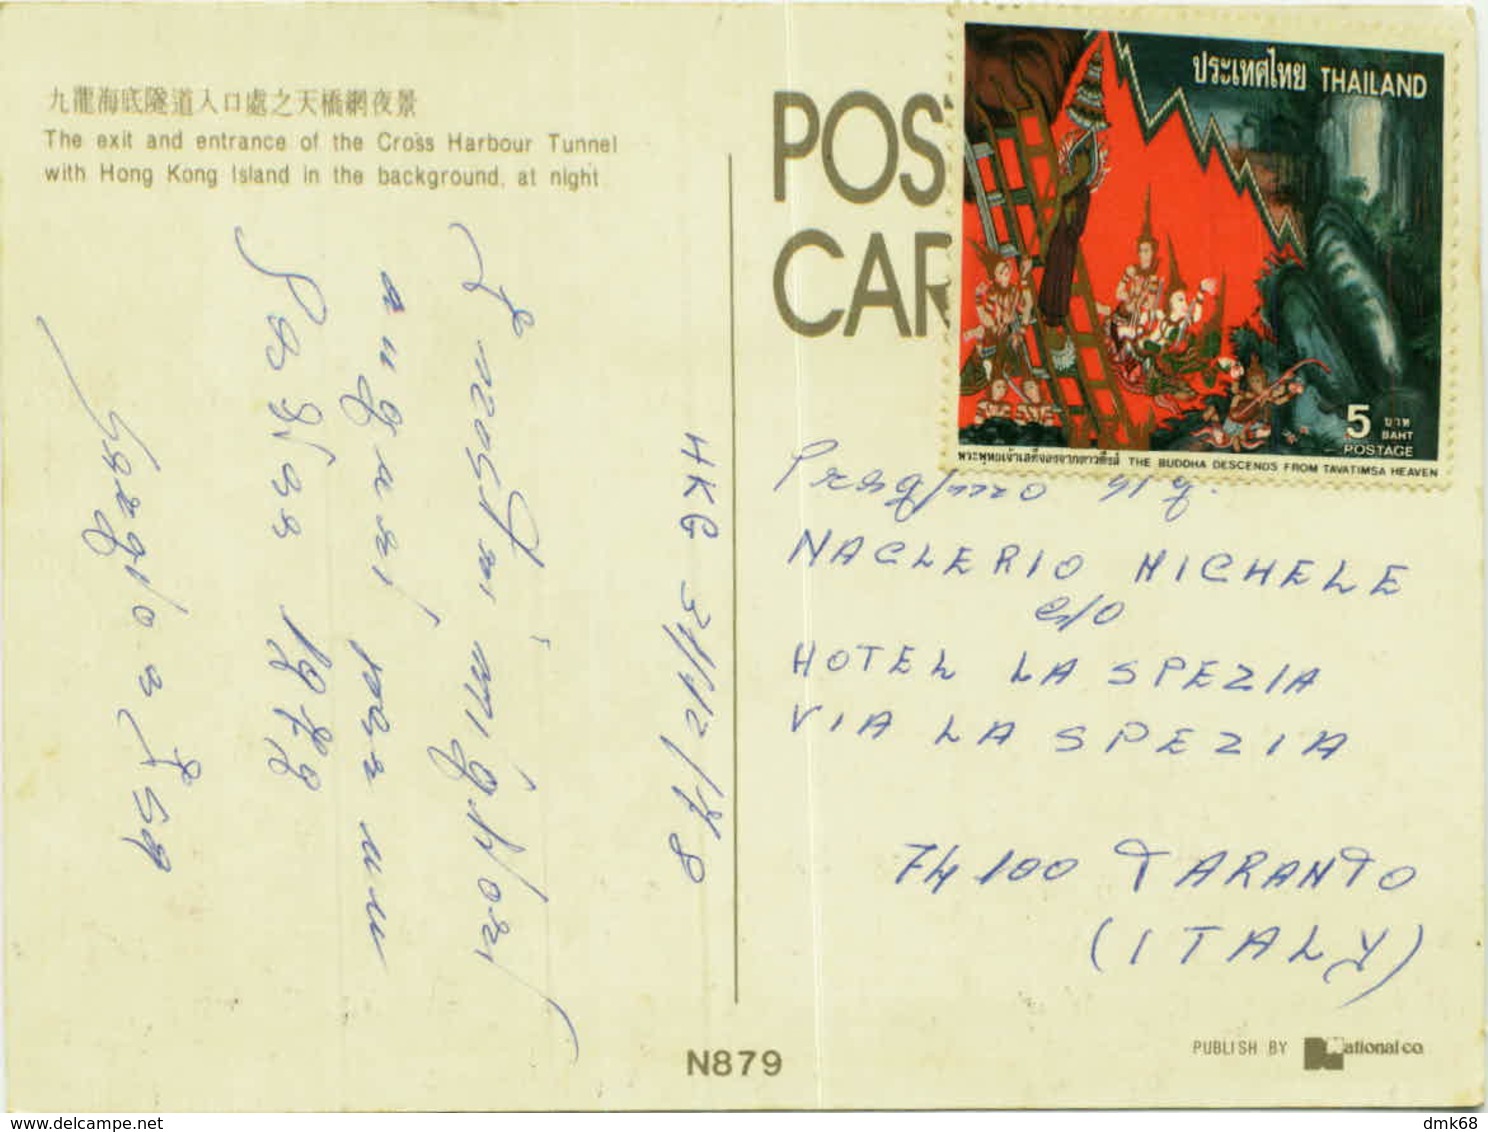 九龍海底隧道入口處之天橋網夜景
The exit and entrance of the Cross Harbour Tunnel
with Hong Kong Island in the background, at night
HKG 31/12/78
I nostri migliori
auguri per un
felice 1979
Sergio e Isa
POS
CAR
ประเทศไทย THAILAND
5 บาท
BAHT
POSTAGE
พระพุทธเจ้าเสด็จลงจากดาวดึงส์ THE BUDDHA DESCENDS FROM TAVATIMSA HEAVEN
Preg/mo Sig.
NACLERIO MICHELE
c/o
HOTEL LA SPEZIA
VIA LA SPEZIA
74100 TARANTO
(ITALY)
N879
PUBLISH BY National co
delcampe.net
dmk68